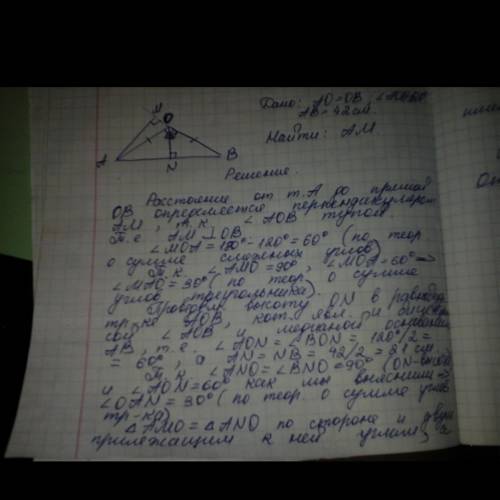 M
O
A
N
B
Дано: AO = OB,
AB = 42 см.
Найти: AM.
Решение.
Расстояние от т. A до прямой
OB определяется перпендикуляром
AM, т.к. ∠AOB тупой.
Т.е. AM ⊥ OB
∠MOA = 180° - 120° = 60° (по теор.
о сумме смежных углов)
Т.к. ∠AMO = 90°, ∠MOA = 60° ⇒
∠MAO = 30° (по теор. о сумме
углов треугольника).
Проводим высоту ON в
тр-ке AOB, кот. явл. и
∠AOB и медианой
AB, т.е. ∠AON = ∠BON = 120°/2 =
= 60°, а AN = NB = 42/2 = 21 см.
Т.к. ∠ANO = ∠BNO = 90° (ON-высота)
и ∠AON = 60° как мы выяснили ⇒
∠OAN = 30° (по теор. о сумме углов
тр-ка)
△AMO = △ANO по стороне и двум
прилежащим к ней углам, а